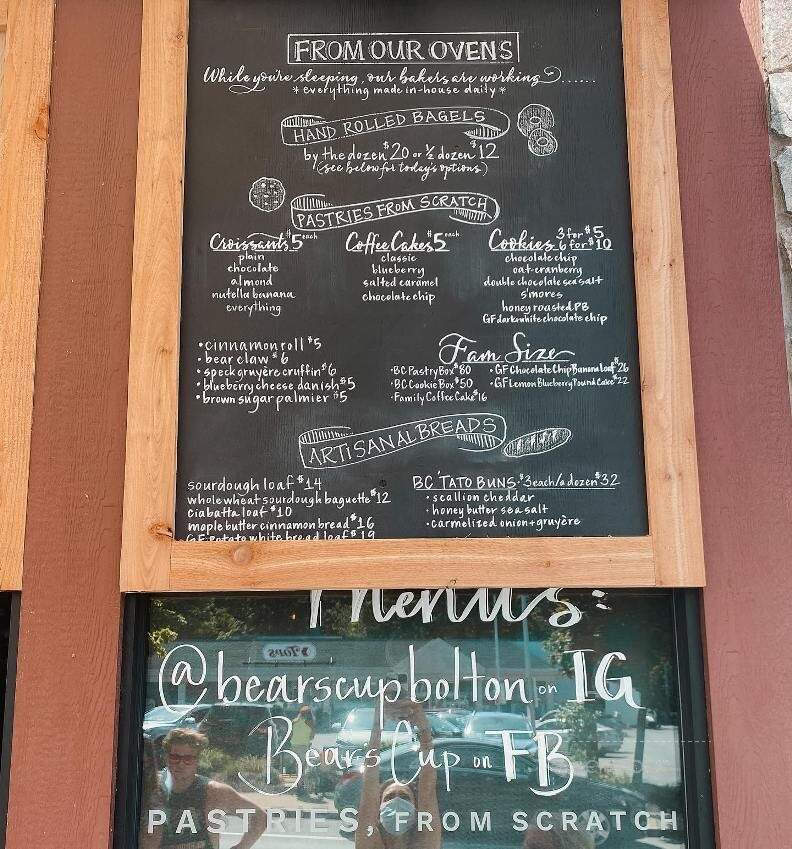 FROM OUR OVENS
While you're sleeping, our bakers are working......
*everything made in-house daily*
HAND ROLLED BAGELS
by the dozen $20 or ½ dozen $12
(see below for today's options)
PASTRIES FROM SCRATCH
Croissants $5 each
plain
chocolate
almond
nutella banana
everything
Coffee Cakes $5 each
classic
blueberry
salted caramel
chocolate chip
Cookies 3 for $5
6 for $10
chocolate chip
oat-cranberry
double chocolate sea salt
s'mores
honey roasted PB
GF dark+white chocolate chip
•cinnamon roll $5
•bear claw $6
•speck gruyère cruffin $6
•blueberry cheese danish $5
•brown sugar palmier $5
Fam Size
•BC Pastry Box $60
•BC Cookie Box $50
•Family Coffee Cake $16
•GF Chocolate Chip Banana Loaf $26
•GF Lemon Blueberry Pound Cake $22
ARTISANAL BREADS
sourdough loaf $14
whole wheat sourdough baguette $12
ciabatta loaf $10
maple butter cinnamon bread $16
GF potato white bread loaf $19
BC 'TATO BUNS $3 each/a dozen $32
•scallion cheddar
•honey butter sea salt
•carmelized onion+gruyère
Menus:
@bearscupbolton on IG
Bear's Cup on FB
PASTRIES, FROM SCRATCH
Tops